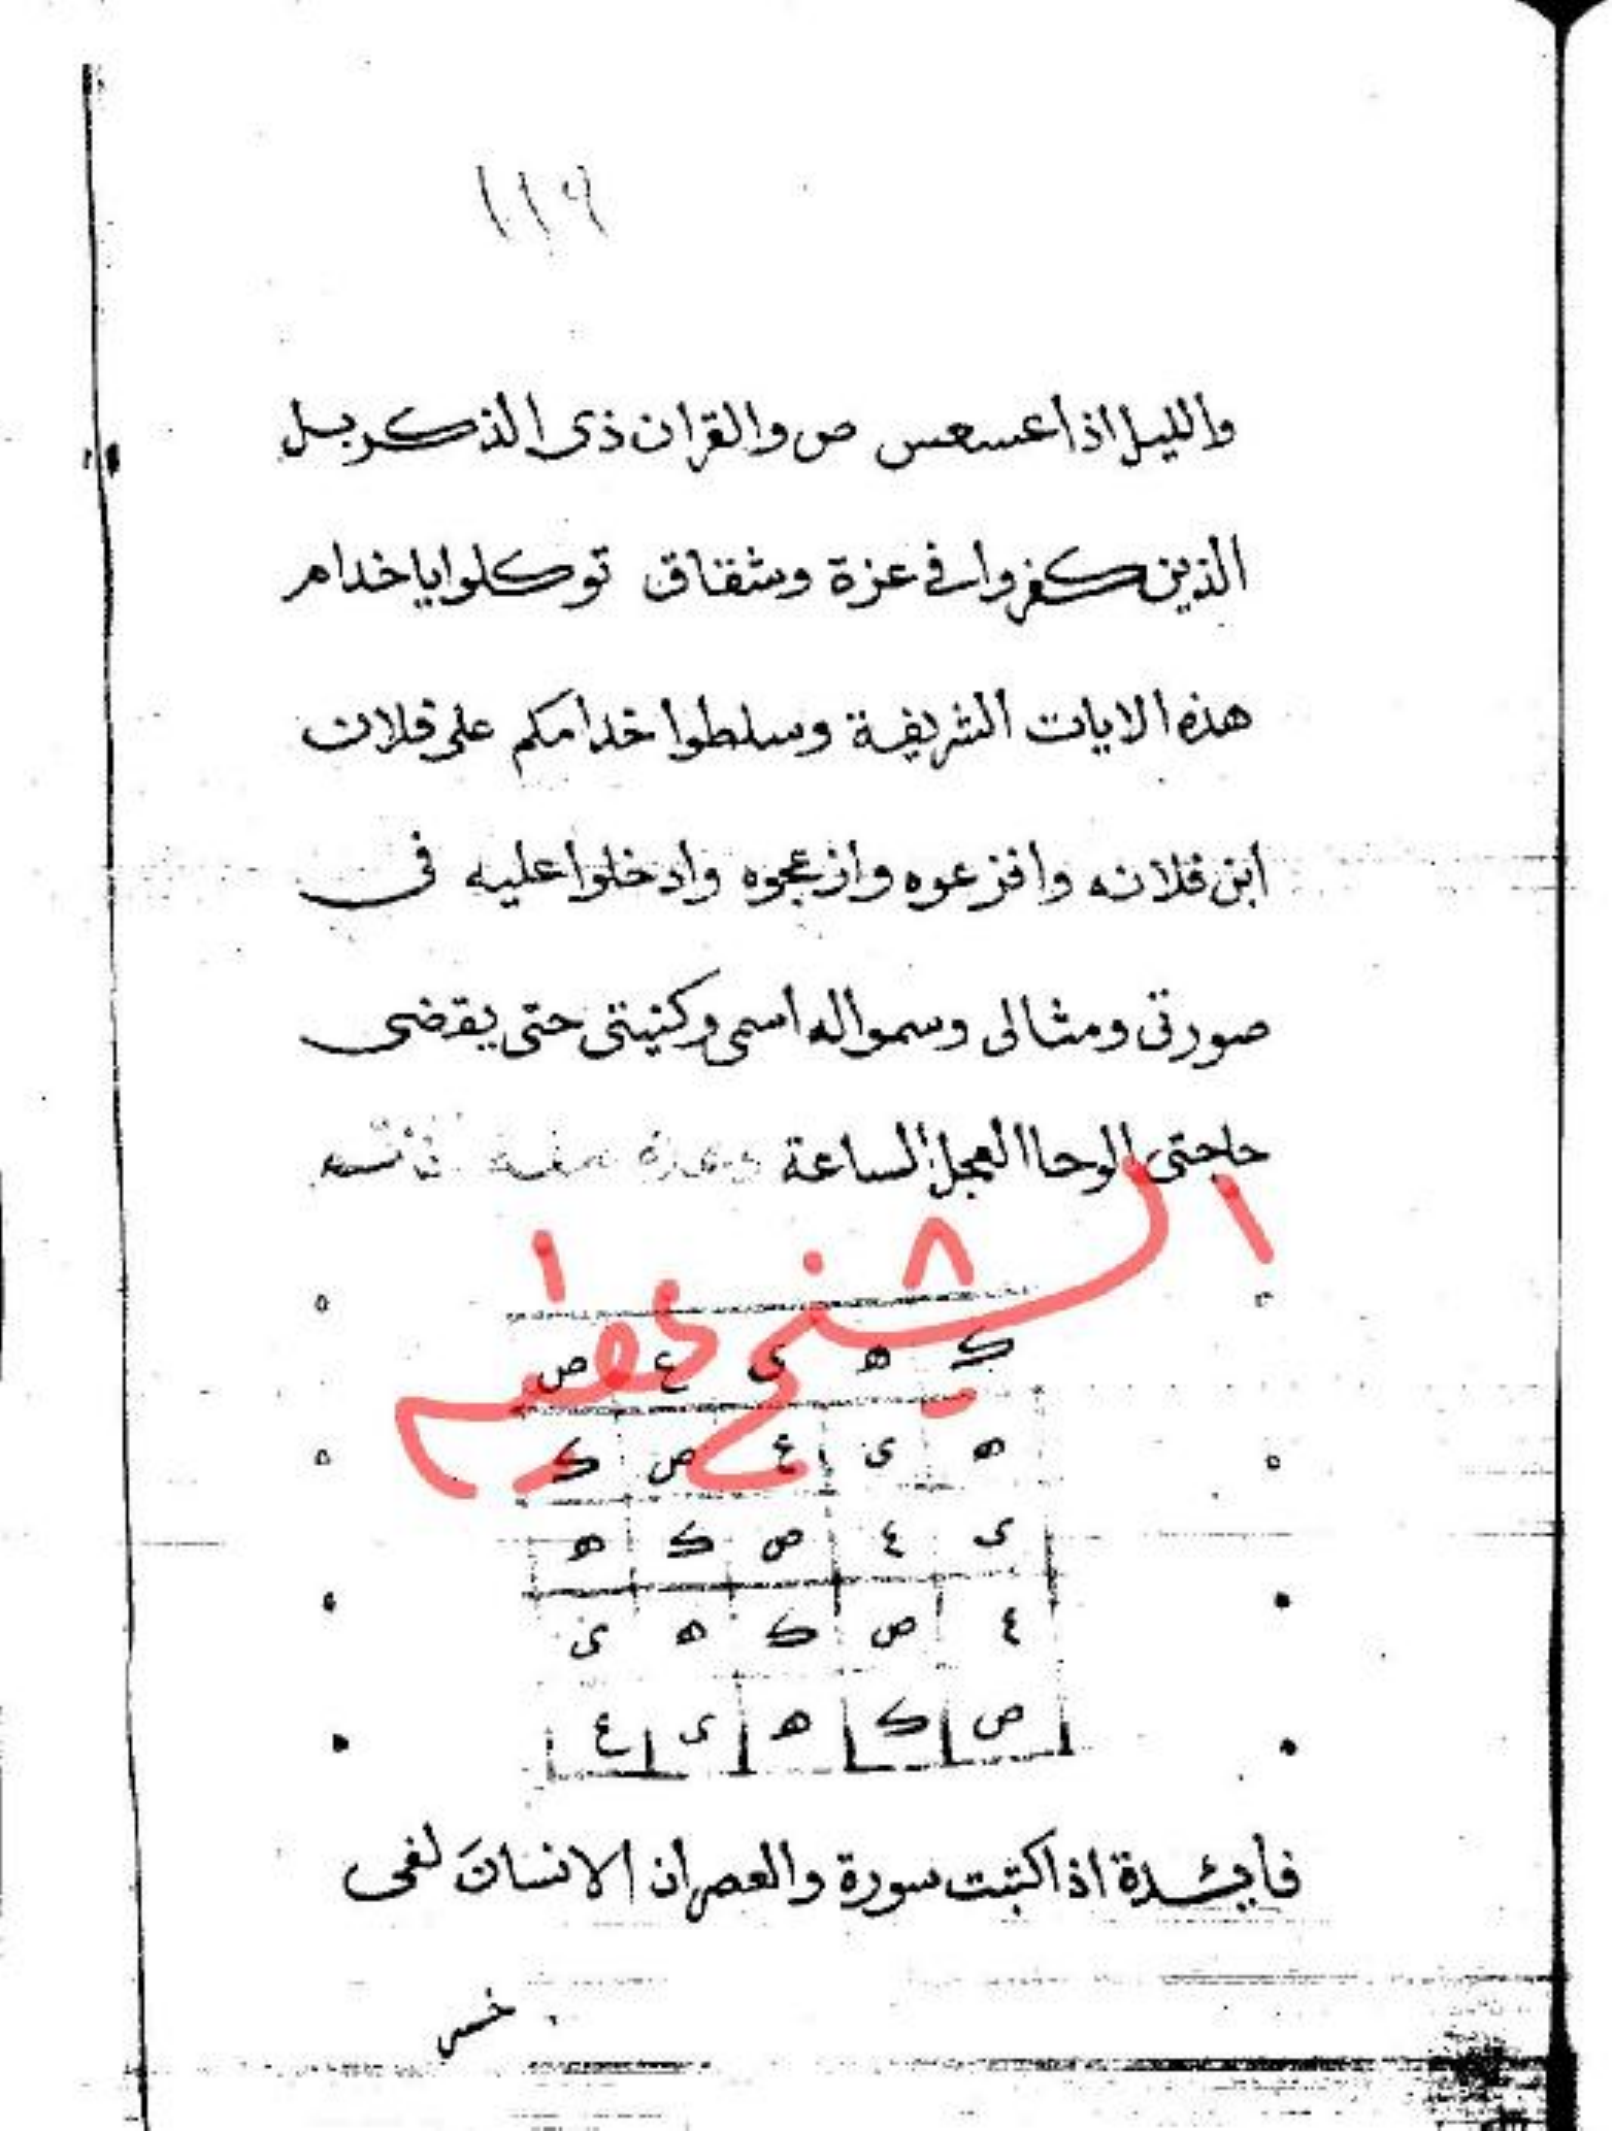 ١١٩
والليل اذا عسعس ص والقران ذى الذكر بل
الذين كفروا فى عزة وشقاق توكلوا يا خدام
هذه الايات الشريفة وسلطوا خدامكم على فلان
ابن فلانه وافزعوه وازعجوه وادخلوا عليه فى
صورتى ومثالى وسموا له اسمى وكنيتى حتى يقضى
حاجتى الوحا العجل الساعة
الشيخ
ك ه ى ع ص
ه ى ع ص ك
ى ع ص ك ه
ع ص ك ه ى
ص ك ه ى ع
فايئدة اذا كتبت سورة والعصر ان الانسانَ لفى
خسر